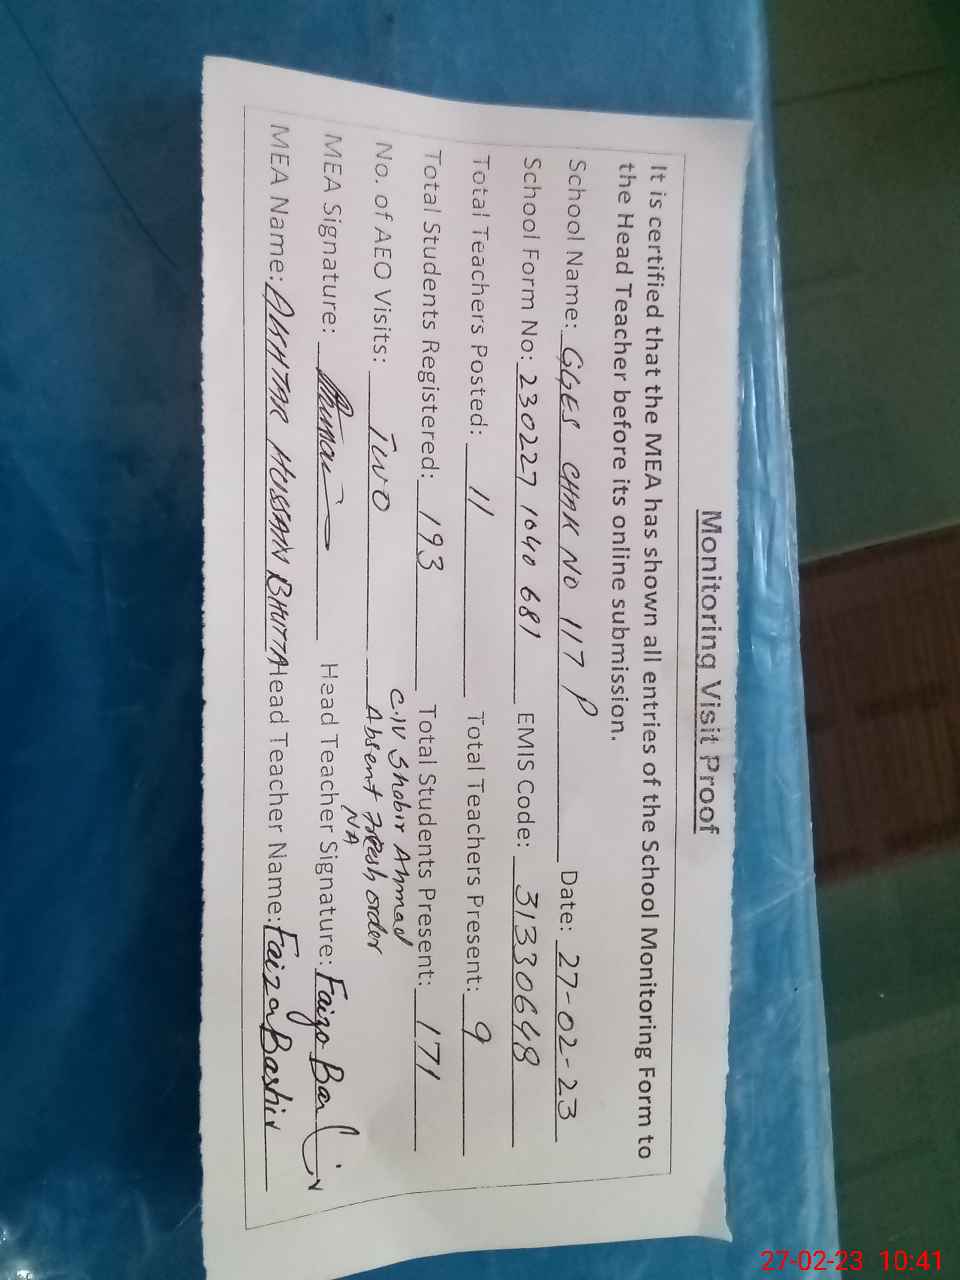 Monitoring Visit Proof
It is certified that the MEA has shown all entries of the School Monitoring Form to
the Head Teacher before its online submission.
School Name: GGES CHAK NO 117 P Date: 27-02-23
School Form No: 230227 1040 681 EMIS Code: 31330648
Total Teachers Posted: 11 Total Teachers Present: 9
Total Students Registered: 193 Total Students Present: 171
C.IV Shabir Ahmad
No. of AEO Visits: Two Absent Fresh order
NA
MEA Signature: Head Teacher Signature: Faiza
MEA Name: AKHTAR HUSSAIN BHUTTA Head Teacher Name: Faiza Bashir
27-02-23 10:41